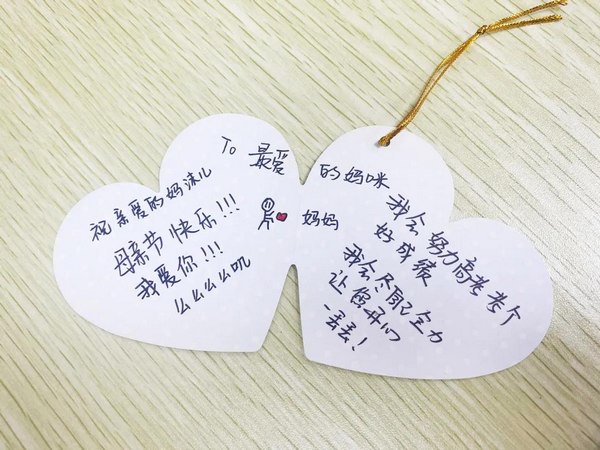 To 最爱的妈咪
祝亲爱的妈沫儿
母亲节快乐!!!
我爱你!!!
么么么么叽
妈妈
我会努力高考考个
好成绩
我会尽配全力
让您开心
一丢丢!